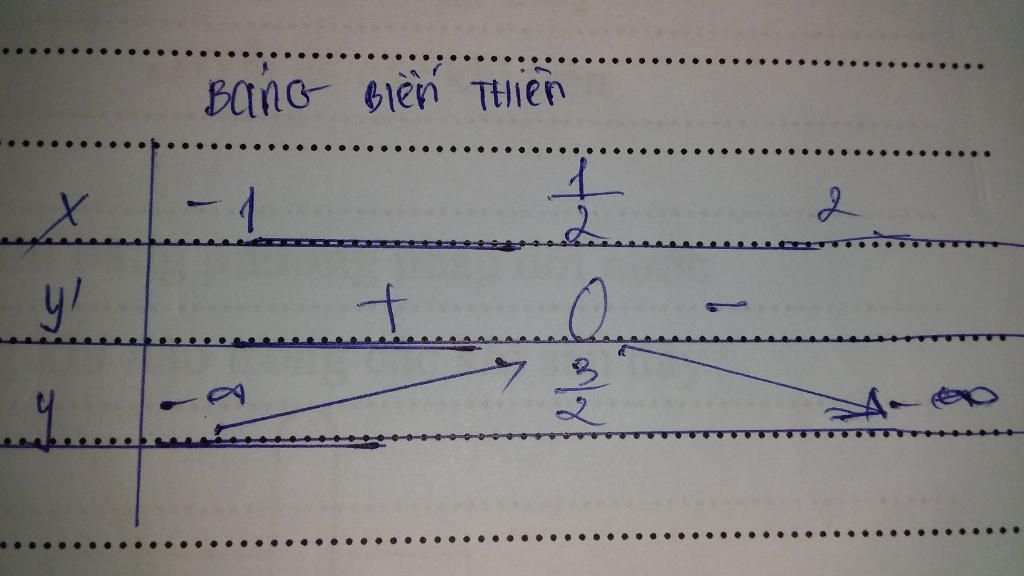 BẢNG BIẾN THIÊN
x -1 1/2 2
y' + 0 -
y -∞ 3/2 -∞